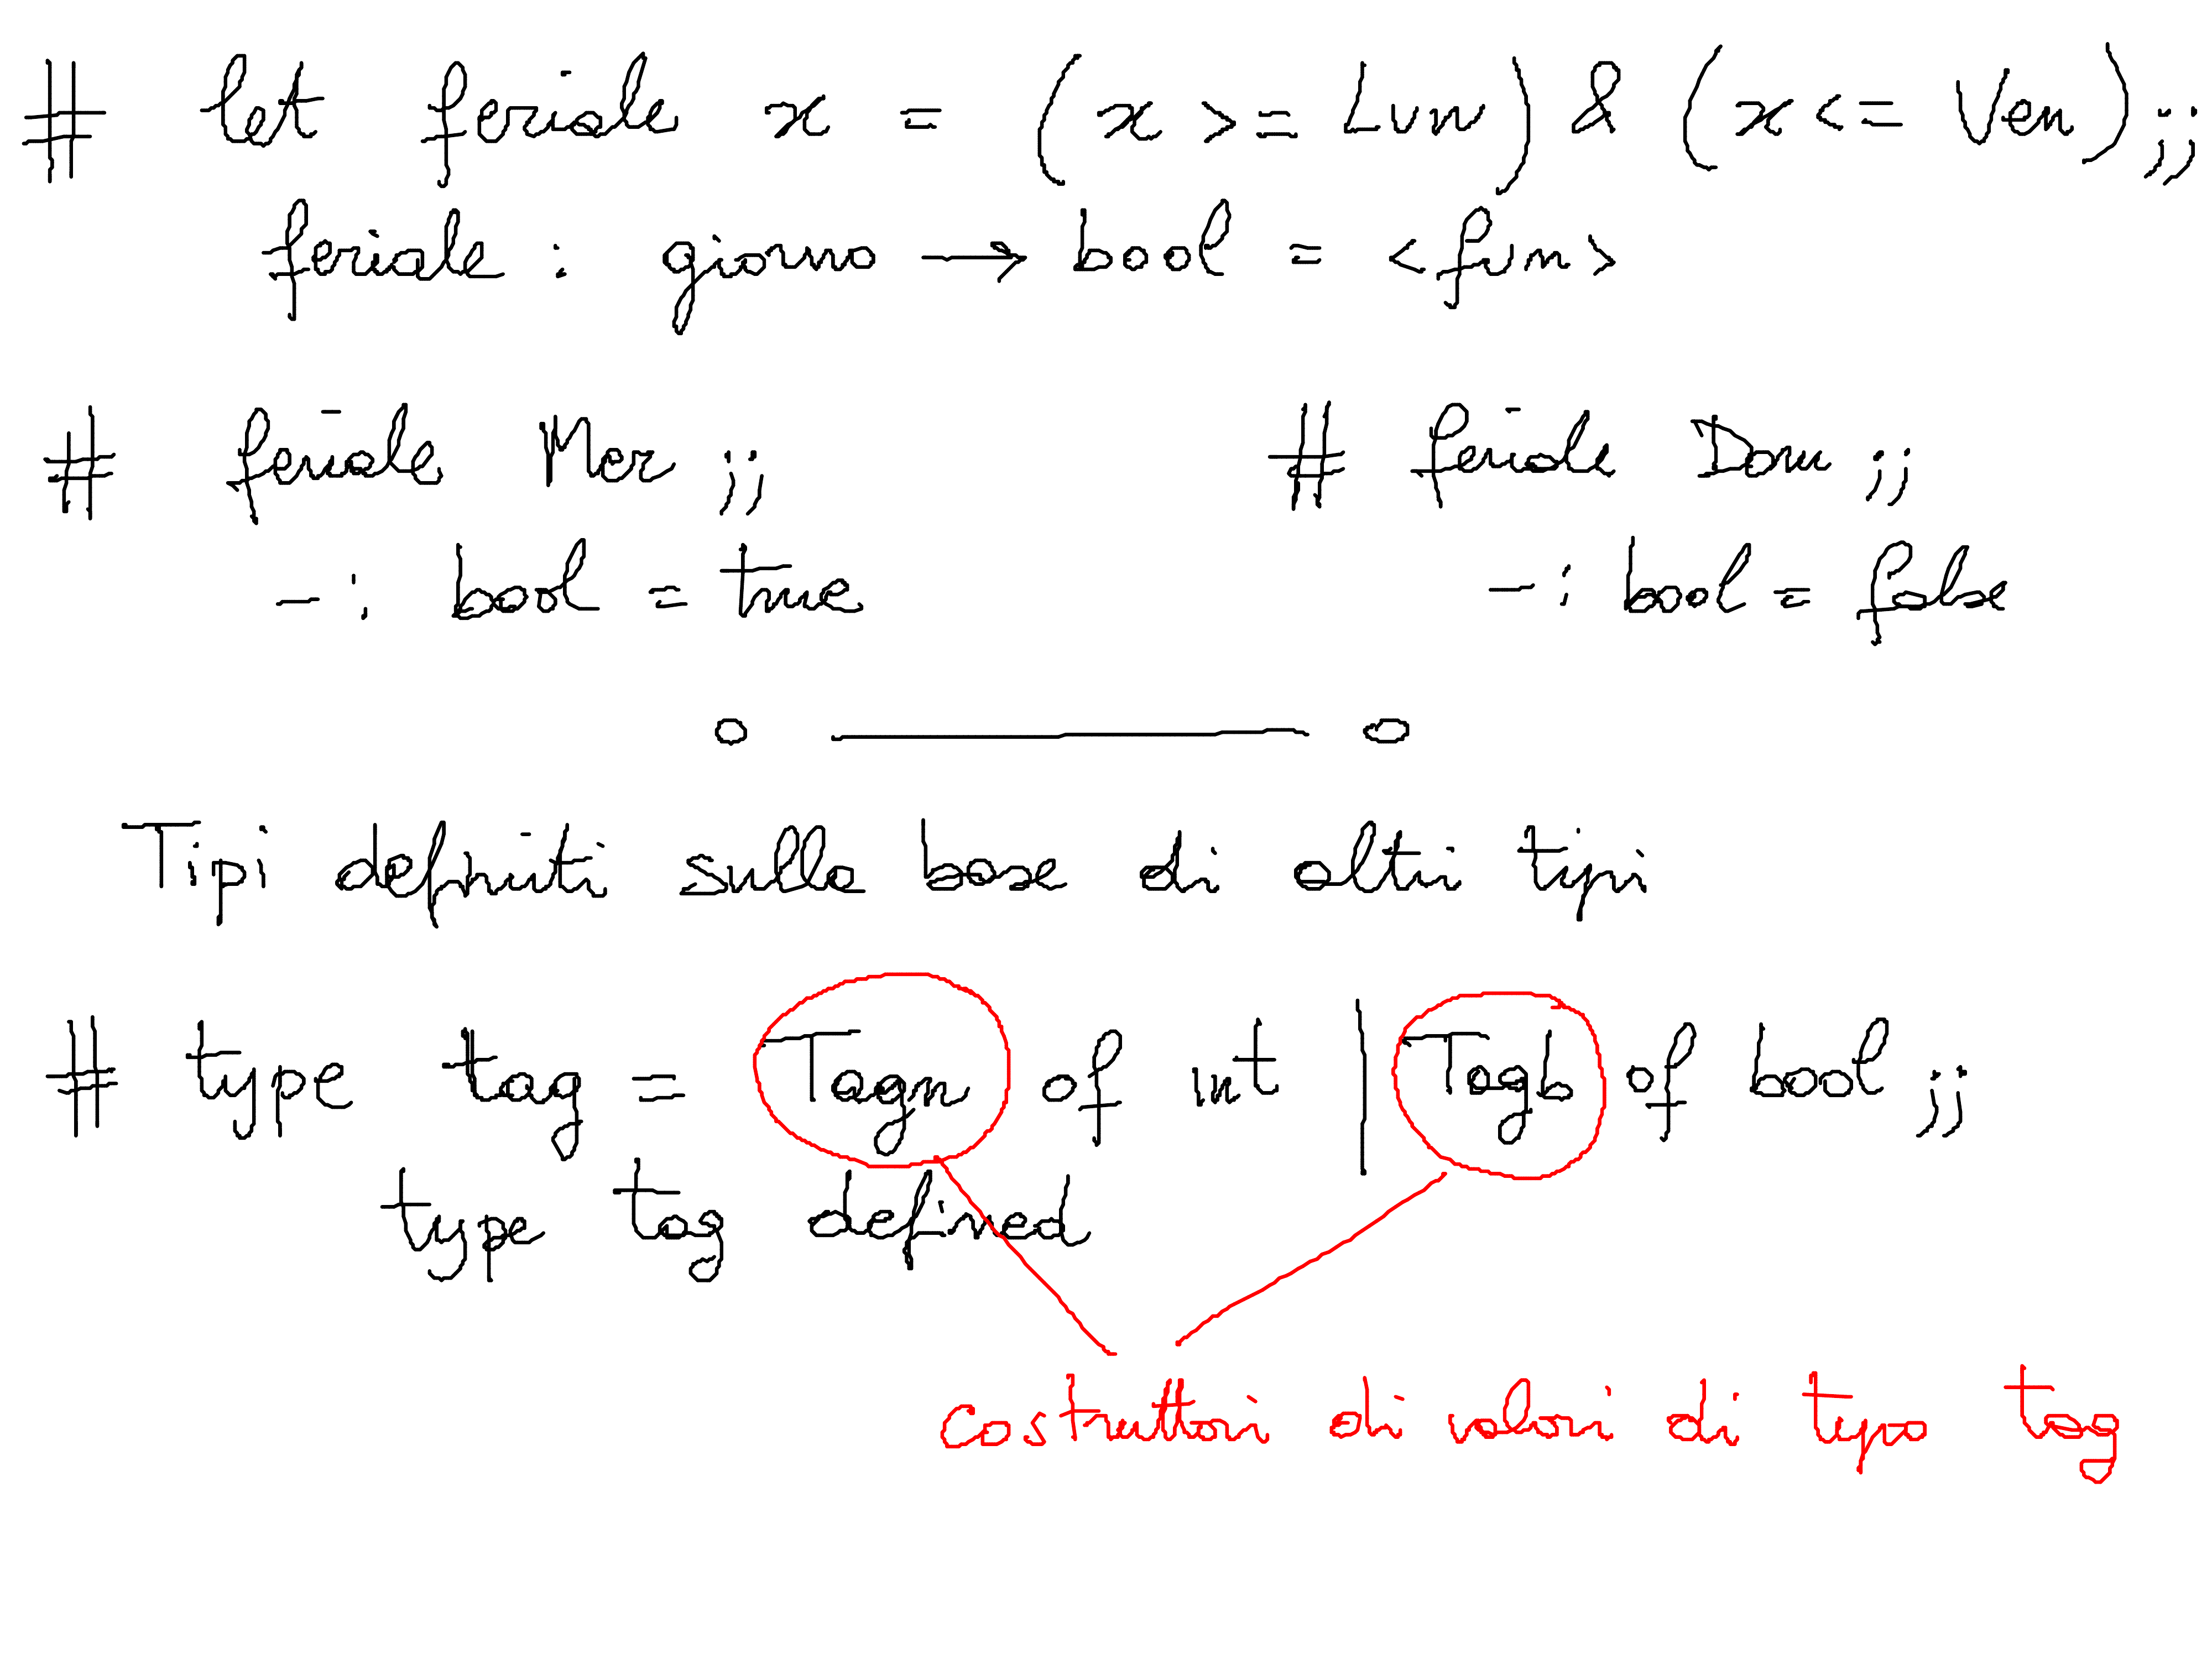 # let feriale x = (x >= Lun) & (x <= Ven) ;;
feriale : giorno → bool = <fun>
# feriale Mer ;;
- : bool = true
# feriale Dom ;;
- : bool = false
Tipi definiti sulla base di altri tipi
# type tag = Tagn of int | Tagb of bool ;;
type tag defined
costruttori di valori di tipo tag